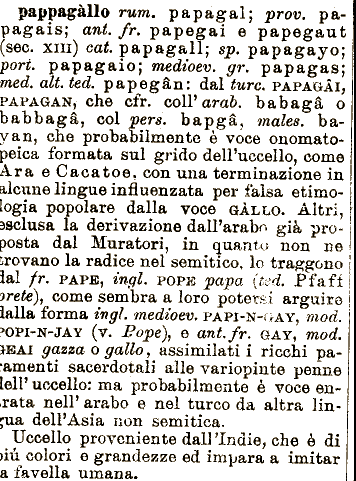 pappagàllo rum. papagal; prov. pa-
pagais; ant. fr. papegai e papegaut
(sec. XIII) cat. papagall; sp. papagayo;
port. papagaio; medioev. gr. papagas;
med. alt. ted. papegân: dal turc. PAPAGÂI,
PAPAGAN, che cfr. coll' arab. babagâ o
babbagâ, col pers. bapgâ, males. ba-
yan, che probabilmente è voce onomato-
peica formata sul grido dell'uccello, come
Ara e Cacatoe, con una terminazione in
alcune lingue influenzata per falsa etimo-
logia popolare dalla voce GÀLLO. Altri,
esclusa la derivazione dall'arabo già pro-
posta dal Muratori, in quanto non ne
trovano la radice nel semitico, lo traggono
dal fr. PAPE, ingl. POPE papa (ted. Pfaff
prete), come sembra a loro potersi arguire
dalla forma ingl. medioev. PAPI-N-GAY, mod.
POPI-N-JAY (v. Pope), e ant. fr. GAY, mod.
GEAI gazza o gallo, assimilati i ricchi pa-
ramenti sacerdotali alle variopinte penne
dell' uccello: ma probabilmente è voce en-
trata nell' arabo e nel turco da altra lin-
gua dell'Asia non semitica.
Uccello proveniente dall'Indie, che è di
più colori e grandezze ed impara a imitar
la favella umana.